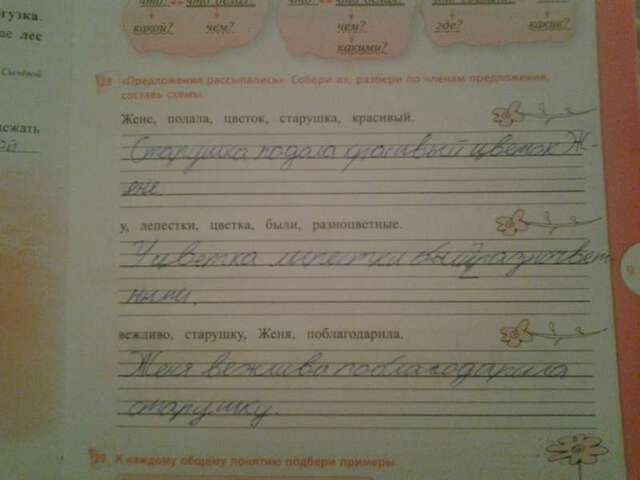 гузка.
ае лес
Сладкой
лежать
ой
что? что делал?
что? что делал?
какой? чем?
чем?
какими?
где? какие?
28 «Предложения рассыпались». Собери их, разбери по членам предложения,
составь схемы.
Жене, подала, цветок, старушка, красивый.
Старушка подала красивый цветок Ж-
ене.
у, лепестки, цветка, были, разноцветные.
У цветка лепестки были разноцвет
ными.
вежливо, старушку, Женя, поблагодарила.
Женя вежливо поблагодарила
старушку.
29 К каждому общему понятию подбери примеры.
9